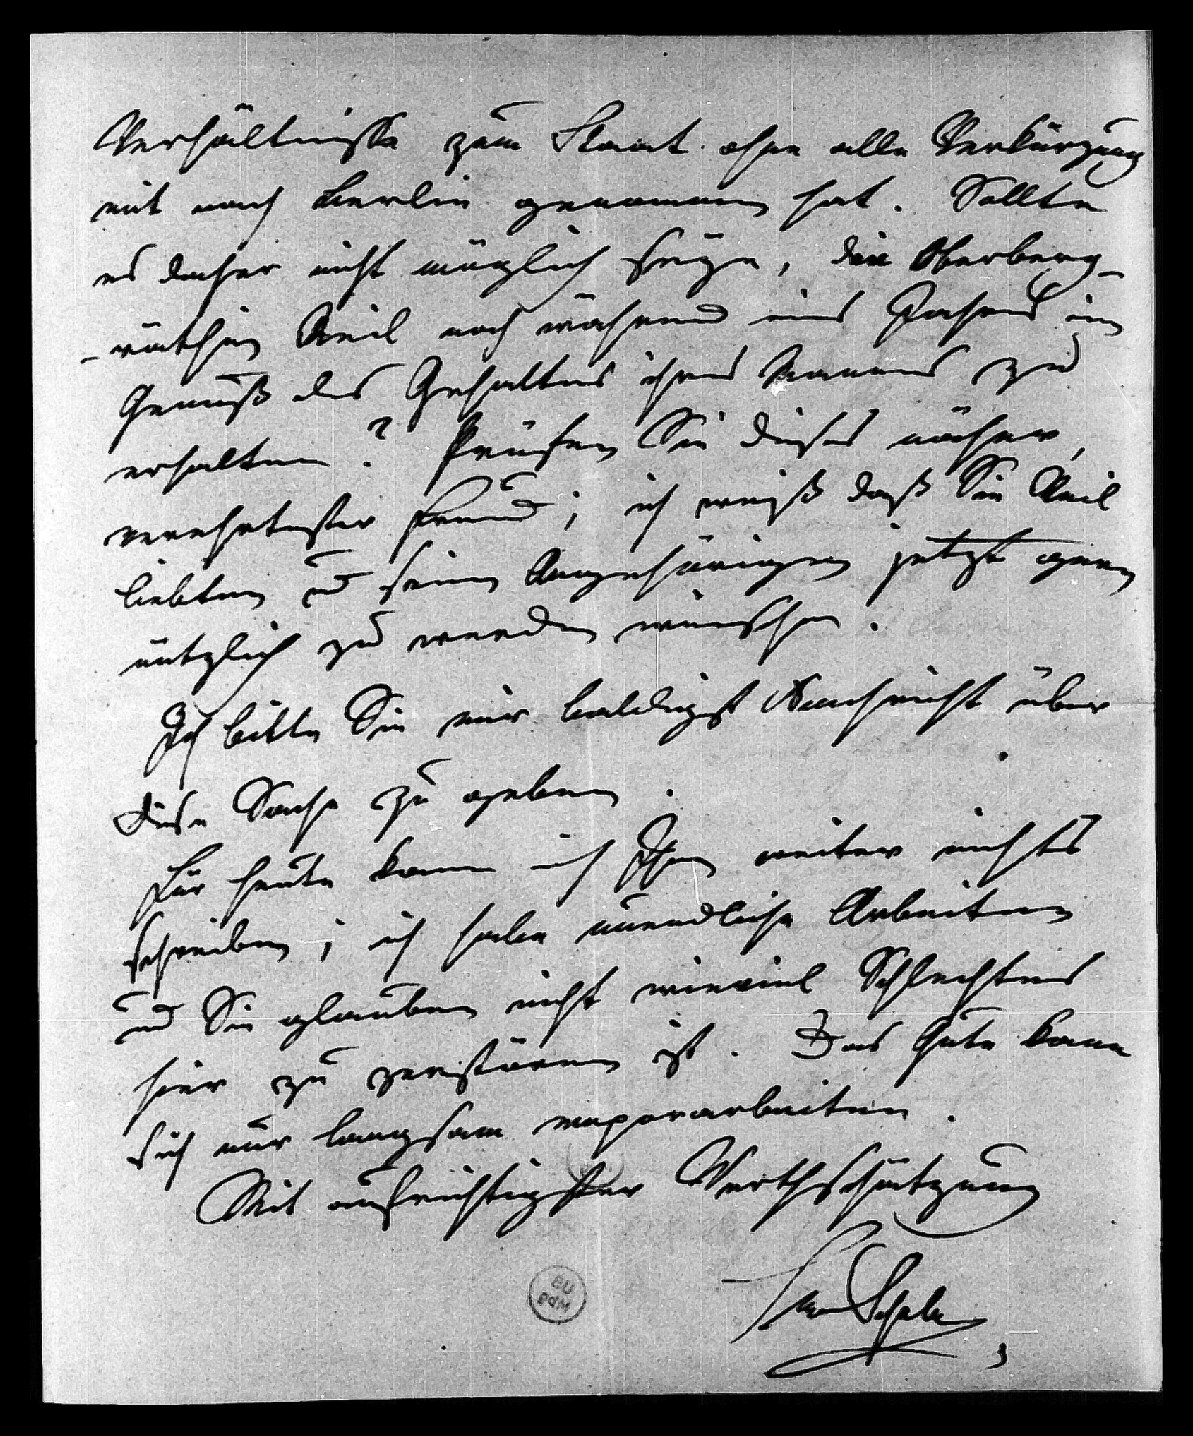 Verhältnisse zum Staat ohne alle Verkürzung
mit nach Berlin genommen hat. Sollte
es daher nicht möglich seyn, die Oberberg-
-räthin Reil noch während eines Jahres im
Genuß des Gehaltes ihres Mannes zu
erhalten? Prüfen Sie dieses näher,
verehrtester Freund; ich weiß daß Sie Reil
liebten u seinen Angehörigen jetzt gern
nützlich zu werden wünschen.
Ich bitte Sie mir baldigst Nachricht über
diese Sache zu geben.
Für heute kann ich Ihnen weiter nichts
schreiben; ich habe unendliche Arbeiten
und Sie glauben nicht wieviel Schlechtes
hier zu zerstören ist. Das Gute kann
sich nur langsam emporarbeiten.
Mit aufrichtigster Werthschätzung